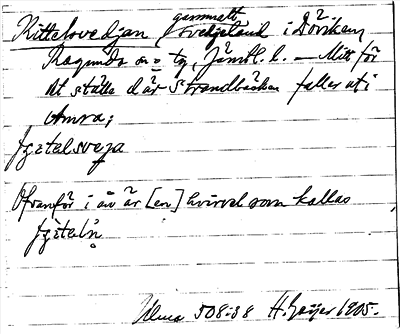 gammalt
Kittelsvedjan, svedjeland i Döviken,
Ragunda sn o tg, Jämtl. l. – Mitt för
det ställe där Strandbäcken faller ut i
Amra;
fgetelsveja
Ofvanför i ån är [en] hvirvel som kallas
fgìteln
Ulma 508:38 H. Geijer 1905.